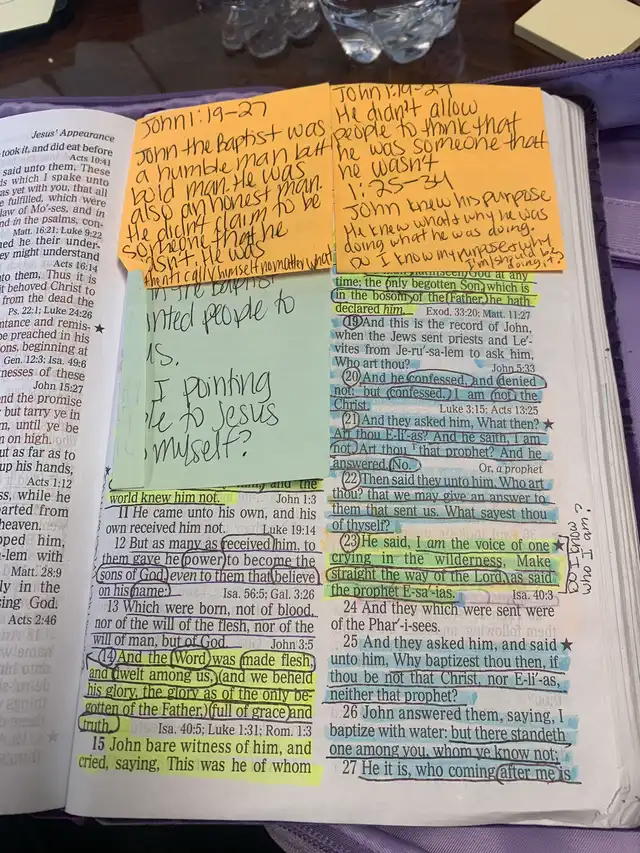 Jesus' Appearance
took it, and did eat before
Acts 10:41
said unto them, These
ds which I spake unto
as yet with you, that all
e fulfilled, which were
law of Mo'-ses, and in
nd in the psalms, con-
Matt. 16:21; Luke 9:22
ned he their under-
ey might understand
Acts 16:14
nto them, Thus it is
it behoved Christ to
from the dead the
Ps. 22:1; Luke 24:26
ntance and remis-
be preached in his
ons, beginning at
Gen. 12:3; Isa. 49:6
nesses of these
John 15:27
nd the promise
but tarry in
m, until ye be
m on high.
ut as far as to
up his hands,
Acts 1:12
ss, while he
arted from
heaven.
pped him,
-lem with
Matt. 28:9
ly in the
sing God.
Acts 2:46
John 1:19-27
John the Baptist was
a humble man butt
bold man. He was
also an honest man.
He didn't claim to be
someone that he
wasn't. He was
authentically himself no matter what
in the Baptist
nted people to
us.
I pointing
ple to Jesus
myself?
world knew him not. John 1:3
11 He came unto his own, and his
own received him not. Luke 19:14
12 But as many as received him, to
them gave he power to become the
sons of God, even to them that believe
on his name: Isa. 56:5; Gal. 3:26
13 Which were born, not of blood,
nor of the will of the flesh, nor of the
will of man, but of God. John 3:5
14 And the Word was made flesh,
and dwelt among us, (and we beheld
his glory, the glory as of the only be-
gotten of the Father,) full of grace and
truth. Isa. 40:5; Luke 1:31; Rom. 1:3
15 John bare witness of him, and
cried, saying, This was he of whom
John 1:19-27
He didn't allow
people to think that
he was someone that
he wasn't
1:25-34
John knew his purpose
He knew what & why he was
doing what he was doing.
Do I know my purpose & why
I'm should be
doing it?
God at any
time; the only begotten Son, which is
in the bosom of the Father, he hath
declared him. Exod. 33:20; Matt. 11:27
19 And this is the record of John,
when the Jews sent priests and Le'-
vites from Je-ru'-sa-lem to ask him,
Who art thou? John 5:33
20 And he confessed, and denied
not; but confessed, I am not the
Christ. Luke 3:15; Acts 13:25
21 And they asked him, What then?
Art thou E-li'-as? And he saith, I am
not. Art thou that prophet? And he
answered, No. Or, a prophet
22 Then said they unto him, Who art
thou? that we may give an answer to
them that sent us. What sayest thou
of thyself?
23 He said, I am the voice of one
crying in the wilderness, Make
straight the way of the Lord, as said
the prophet E-sa'-ias. Isa. 40:3
24 And they which were sent were
of the Phar'-i-sees.
25 And they asked him, and said
unto him, Why baptizest thou then, if
thou be not that Christ, nor E-li'-as,
neither that prophet?
26 John answered them, saying, I
baptize with water: but there standeth
one among you, whom ye know not;
27 He it is, who coming after me is
who am I?